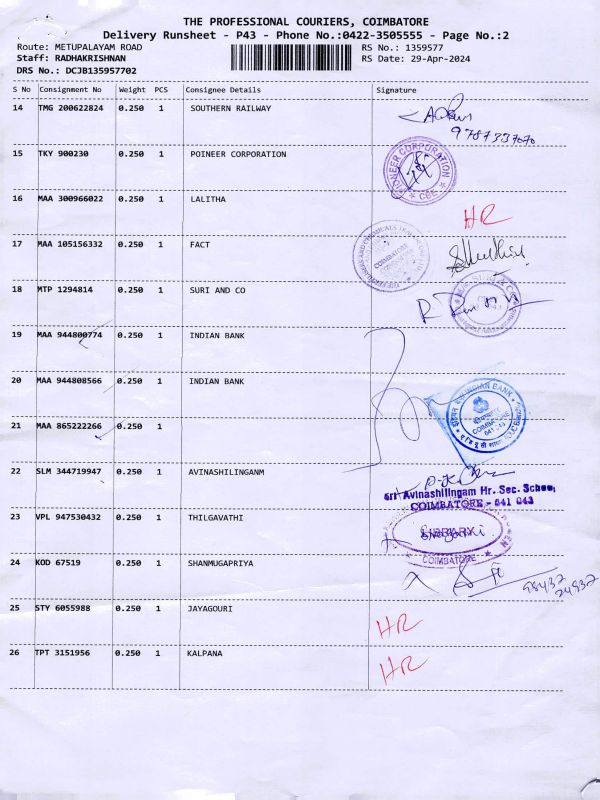 THE PROFESSIONAL COURIERS, COIMBATORE
Delivery Runsheet - P43 - Phone No.:0422-3505555 - Page No.:2
Route: METUPALAYAM ROAD
RS No.: 1359577
Staff: RADHAKRISHNAN
RS Date: 29-Apr-2024
DRS No.: DCJB135957702
S No Consignment No Weight PCS Consignee Details Signature
14 TMG 200622824 0.250 1 SOUTHERN RAILWAY
15 TKY 900230 0.250 1 POINEER CORPORATION
PIONEER CORPORATION
CBE
16 MAA 300966022 0.250 1 LALITHA HR
17 MAA 105156332 0.250 1 FACT
COIMBATORE
18 MTP 1294814 0.250 1 SURI AND CO
19 MAA 944800774 0.250 1 INDIAN BANK
20 MAA 944808566 0.250 1 INDIAN BANK
INDIAN BANK
COIMBATORE
21 MAA 865222266 0.250 1
22 SLM 344719947 0.250 1 AVINASHILINGANM
Sri Avinashilingam Hr. Sec. School
COIMBATORE - 641 043
23 VPL 947530432 0.250 1 THILGAVATHI
LIBRARY
COIMBATORE
24 KOD 67519 0.250 1 SHANMUGAPRIYA
98432
24932
25 STY 6055988 0.250 1 JAYAGOURI HR
26 TPT 3151956 0.250 1 KALPANA HR